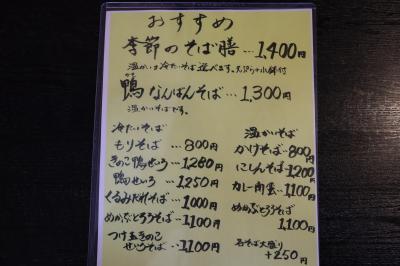 おすすめ
季節のそば膳…1,400円
温かい・冷たいそば選べます。天ぷら・小鉢付
鴨なんばんそば…1,300円
温かいそばです。
冷たいそば
もりそば…800円
きのこ鴨せいろ…1,280円
鴨せいろ…1,250円
くるみだれそば…1,000円
めかぶとろろそば…1,100円
つけ玉きのこ
せいろそば…1,100円
温かいそば
かけそば…800円
にしんそば…1,200円
カレー南蛮…1,100円
めかぶとろろそば
1,100円
各そば大盛り
+250円